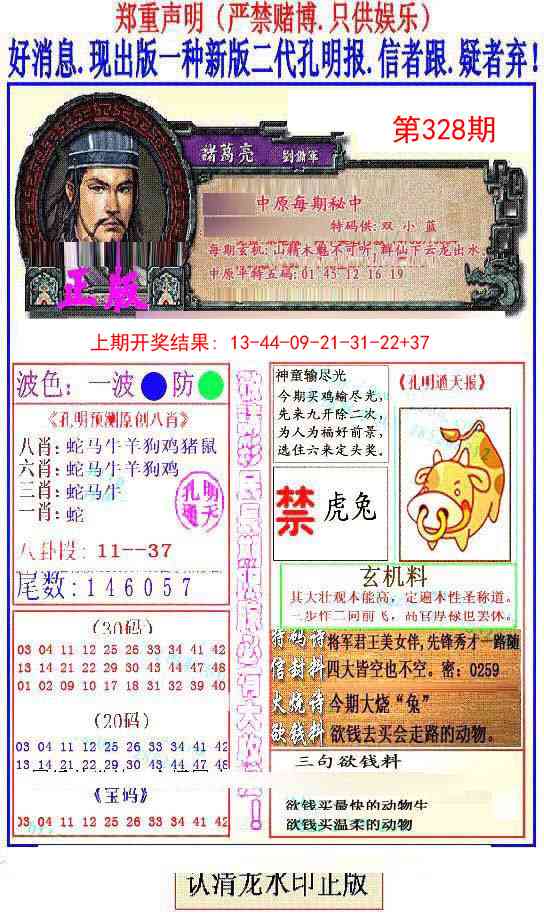 郑重声明（严禁赌博.只供娱乐）
好消息.现出版一种新版二代孔明报.信者跟.疑者弃！
第328期
諸葛亮 劉備軍
中原每期秘中
特码供:双 小 蓝
每期玄机:山精木魅不可听 群仙下云龙出水
中原平特五码:01 45 12 16 19
正版
上期开奖结果: 13-44-09-21-31-22+37
波色：一波 防
《孔明预测原创八肖》
八肖：蛇马牛羊狗鸡猪鼠
六肖：蛇马牛羊狗鸡
三肖：蛇马牛
一肖：蛇
孔明通天
八卦段：11--37
尾数:146057
(30码)
03 04 11 12 25 26 33 34 41 42
13 14 21 22 29 30 43 44 47 48
01 02 09 10 17 18 31 32 39 40
(20码)
03 04 11 12 25 26 33 34 41 42
13 14 21 22 29 30 43 44 47 48
《宝码》
03 04 11 12 25 26 33 34 41 42
神童输尽光
今期买鸡输尽光,
先来九开除二次,
为人为福好前景,
选住六来定头奖。
《孔明通天报》
禁 虎兔
玄机料
其大壮观本能高，定遍本性圣称道。
三步作二向前飞，高官厚禄也罢休。
特码诗 将军君王美女伴,先锋秀才一路随
信封料 四大皆空也不空。密：0259
火烧诗 今期大烧“兔”
欲钱料 欲钱去买会走路的动物。
三句欲钱料
欲钱买最快的动物生
欲钱买温柔的动物
认清龙水印正版